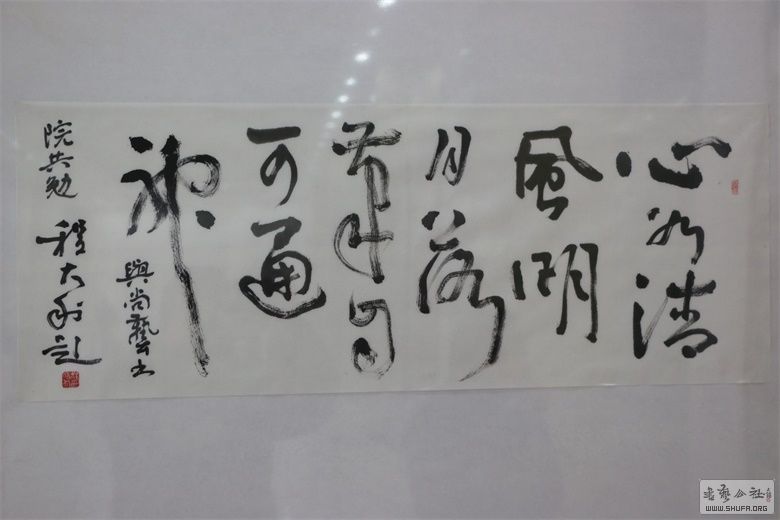 心如清
風明
月落
筆自
可通
神
與尚藝書
院共勉
程大利題
書藝公社
WWW.SHUFA.ORG